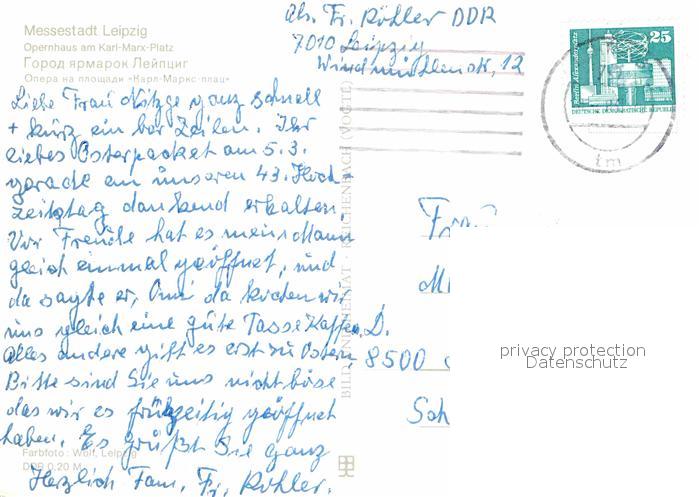 Messestadt Leipzig
Opernhaus am Karl-Marx-Platz
Город ярмарок Лейпциг
Опера на площади «Карл-Маркс-плац»
Abs. Fr. Röhler DDR
7010 Leipzig
Windmühlenstr, 12
25
Berlin, Alexanderplatz
DEUTSCHE DEMOKRATISCHE REPUBLIK
Liebe Frau ganz schnell
+ kurz ein bar Zeilen. Ihr
liebes Osterpacket am 5.3.
gerade an unseren 43. Hoch-
zeitstag dankend erhalten,
Vor Freude hat es mein Mann
gleich einmal geöffnet, und
da sagte er, Omi da kochen wir
uns gleich eine gute Tasse Kaffee.
alles andere gibt es erst zu Ostern
Bitte sind Sie uns nicht böse
das wir es frühzeitig geöffnet
haben. Es grüßt Sie ganz
Herzlich Fam. Fr. Röhler.
Farbfoto: Wolf, Leipzig
DDR 0,20 M
BILD UND HEIMAT · REICHENBACH (VOGTL)
Frau
D.
8500
privacy protection
Datenschutz